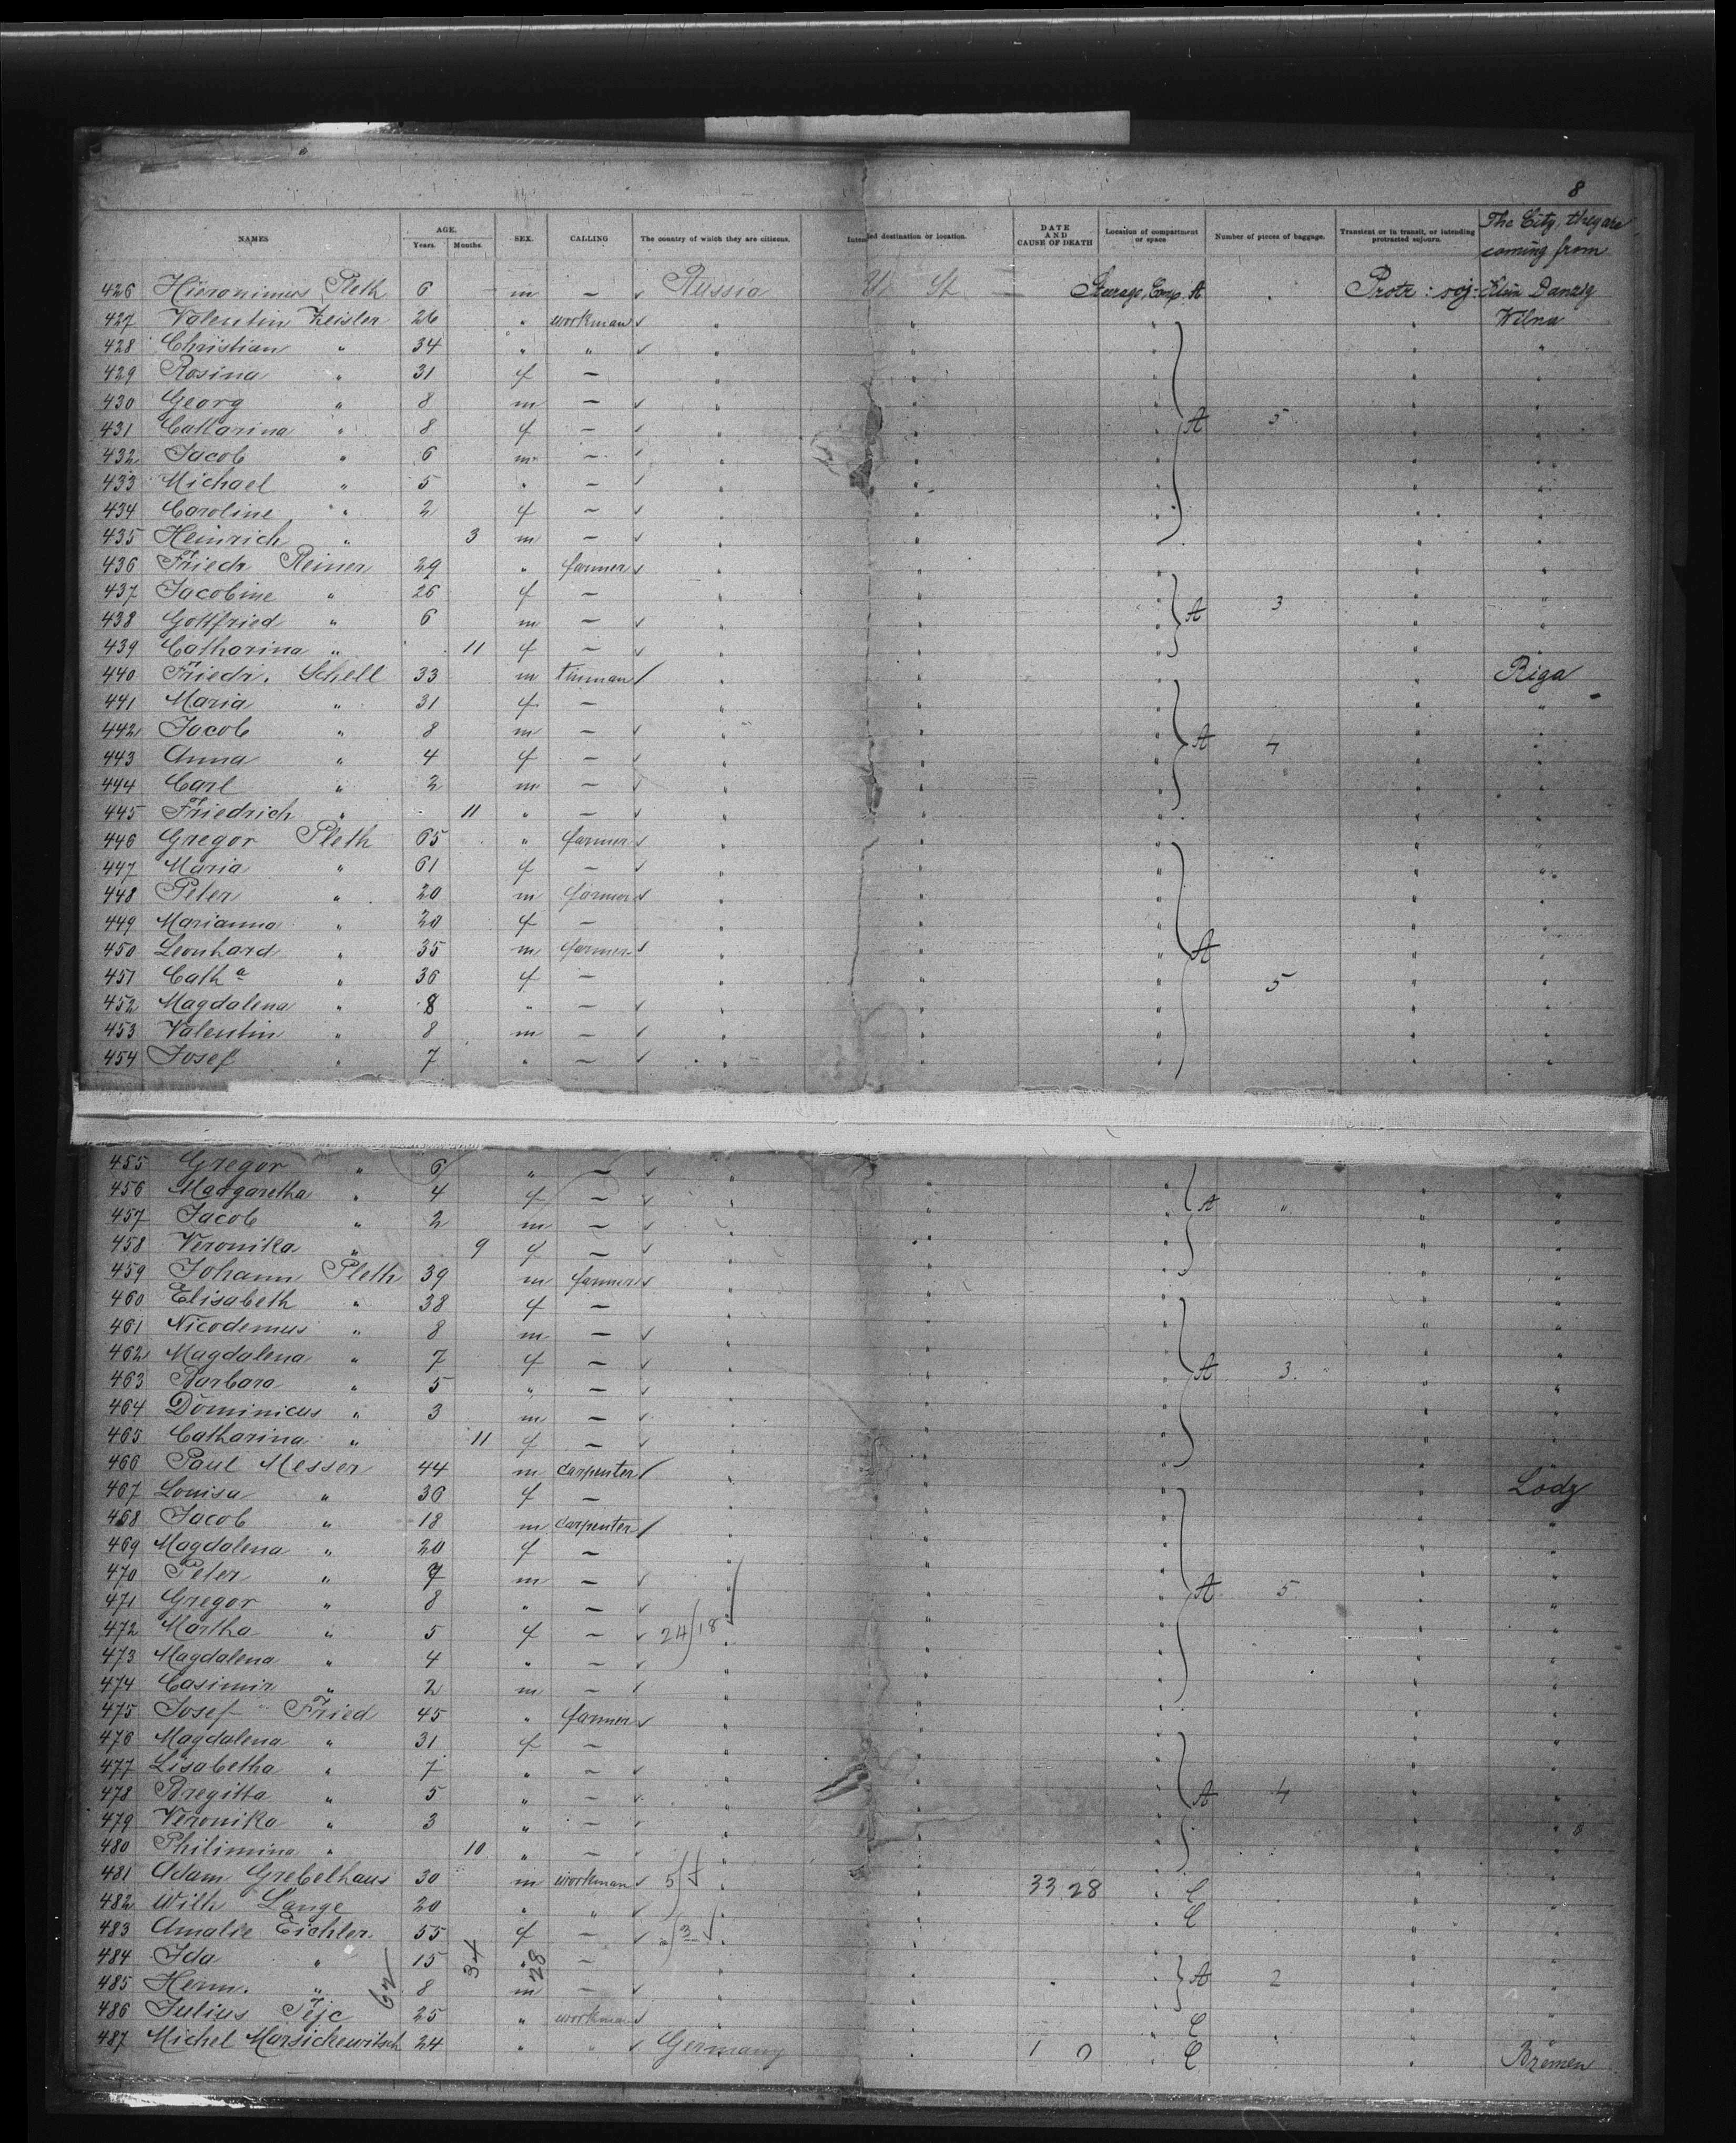 8
NAMES AGE. Years. Months. SEX. CALLING The country of which they are citizens. Intended destination or location. DATE AND CAUSE OF DEATH Location of compartment or space Number of pieces of baggage. Transient or in transit, or intending protracted sojourn. The City, they are coming from
426 Hieronimus Pleth 6 m — ✓ Russia U. St. Steerage, Comp. A Protr: soj: Danzig
427 Valentin Zeisler 26 " workman ✓ " " " " Wilna
428 Christian " 34 " " ✓ " " " " "
429 Rosina " 31 f — " " " " "
430 Georg " 8 m — ✓ " " " " "
431 Catharina " 8 f — ✓ " " " A 5 " "
432 Jacob " 6 m — ✓ " " " " "
433 Michael " 5 " — ✓ " " " " "
434 Caroline " 2 f — ✓ " " " " "
435 Heinrich " 3 m — ✓ " " " " "
436 Friedr Reiner 29 " farmer ✓ " " " " "
437 Jacobine " 26 f — " " " " "
438 Gottfried " 6 m — ✓ " " " A 3 " "
439 Catharina " 11 f — ✓ " " " " "
440 Friedr. Schell 33 m tinman / " " " " Riga
441 Maria " 31 f — " " " " "
442 Jacob " 8 m — ✓ " " " A 4 " "
443 Anna " 4 f — ✓ " " " " "
444 Carl " 2 m — ✓ " " " " "
445 Friedrich " 11 " — ✓ " " " " "
446 Gregor Pleth 65 " farmer ✓ " " " " "
447 Maria " 61 f — ✓ " " " " "
448 Peter " 20 m farmer ✓ " " " " "
449 Marianna " 20 f — " " " " "
450 Leonhard " 35 m farmer ✓ " " " A " "
451 Catha " 36 f — " " " 5 " "
452 Magdalena " 8 " — ✓ " " " " "
453 Valentin " 8 m — ✓ " " " " "
454 Josef " 7 " — ✓ " " " " "
455 Gregor " 6 " — ✓ " " " " "
456 Margaretha " 4 f — ✓ " " " A " " "
457 Jacob " 2 m — ✓ " " " " "
458 Veronika " 9 f — ✓ " " " " "
459 Johann Pleth 39 m farmer ✓ " " " " "
460 Elisabeth " 38 f — " " " " "
461 Nicodemus " 8 m — ✓ " " " " "
462 Magdalena " 7 f — ✓ " " " A 3. " "
463 Barbara " 5 " — ✓ " " " " "
464 Dominicus " 3 m — ✓ " " " " "
465 Catharina " 11 f — ✓ " " " " "
466 Paul Messer 44 m carpenter / " " " " Lodz
467 Louisa " 36 f — " " " " "
468 Jacob " 18 m carpenter / " " " " "
469 Magdalena " 20 f — " " " " "
470 Peter " 7 m — ✓ " " " A 5 " "
471 Gregor " 8 " — ✓ " " " " "
472 Martha " 5 f — ✓ 24/18 " " " " "
473 Magdalena " 4 " — ✓ " " " " "
474 Casimir " 2 m — ✓ " " " " "
475 Josef Fried 45 " farmer ✓ " " " " "
476 Magdalena " 31 f — " " " " "
477 Lisabetha " 7 " — ✓ " " " " "
478 Bregitta " 5 " — ✓ " " " A 4 " "
479 Veronika " 3 " — ✓ " " " " "
480 Philimina " 10 " — ✓ " " " " "
481 Adam Grebelhaus 30 m workman ✓ 5 " " 33 28 " C " "
482 Wilh Lange 20 " " ✓ " " " C " "
483 Amalie Eichler 55 f — ✓ 3 " " " " "
484 Ida " 15 " — " " " " "
485 Herm. " 8 m — ✓ " " " A 2 " "
62 34 28
486 Julius Tejc 25 " workman ✓ " " " C " "
487 Michel Marsichewitsch 24 " " ✓ Germany " 1 0 " C " Bremen